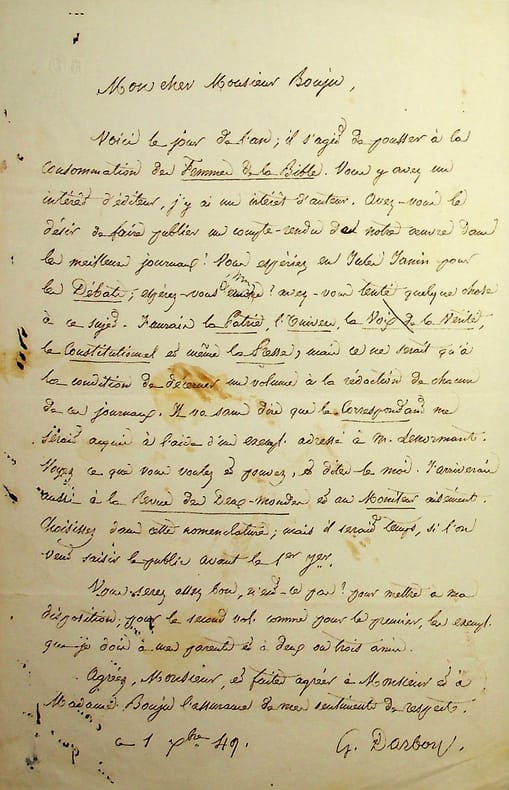 Mon cher Monsieur Bouju,
Voici le jour de l'an; il s'agit de pousser à la
consommation des Femmes de la Bible. Vous y avez un
intérêt d'éditeur, j'y ai un intérêt d'auteur. Avez-vous le
désir de faire publier un compte-rendu de notre œuvre dans
les meilleurs journaux? Vous espériez en Jules Janin pour
les Débats; espérez-vous encore? avez-vous tenté quelque chose
à ce sujet. J'aurais la Patrie, l'Univers, la Voix de la Vérité,
le Constitutionnel et même la Presse; mais ce ne serait qu'à
la condition de décerner un volume à la rédaction de chacun
de ces journaux. Il va sans dire que le Correspondant me
serait acquis à l'aide d'un exempl. adressé à M. Lenormant.
Voyez ce que vous voulez et pouvez, et dites le moi. J'arriverais
aussi à la Revue des Deux-mondes et au Moniteur aisément.
Choisissez dans cette nomenclature; mais il serait temps, si l'on
veut saisir le public avant le 1er
Vous serez assez bon, n'est-ce pas? pour mettre à ma
disposition; pour le second vol. comme pour le premier, les exempl.
que je dois à mes parents et à deux ou trois amis.
Agréez, Monsieur, et faites agréer à Monsieur et à
Madame Bouju l'assurance de mes sentiments de respect.
ce 1 Xbre 49. G. Darboy.